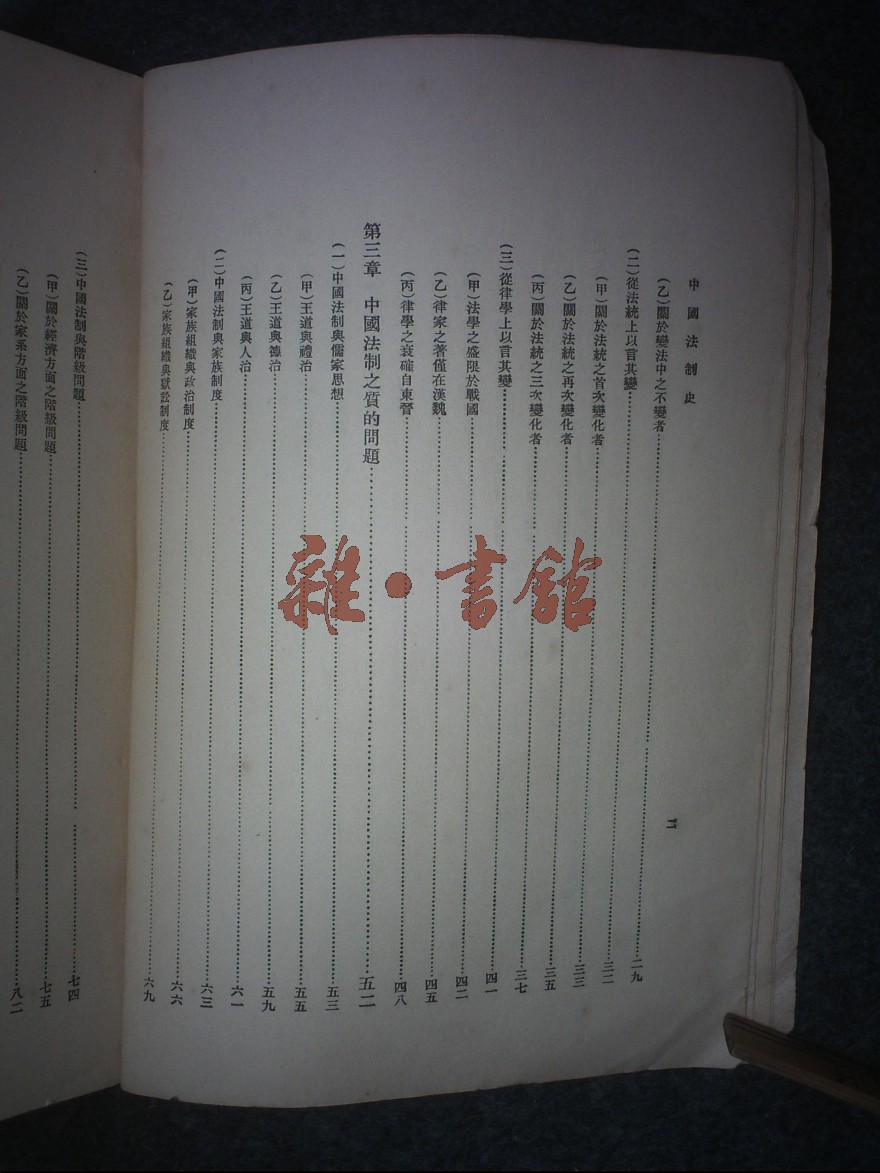 中國法制史
二
(乙)關於變法中之不變者……二九
(二)從法統上以言其變……三二
(甲)關於法統之首次變化者……三三
(乙)關於法統之再次變化者……三五
(丙)關於法統之三次變化者……三七
(三)從律學上以言其變……四一
(甲)法學之盛限於戰國……四二
(乙)律家之著僅在漢魏……四五
(丙)律學之衰確自東晉……四八
第三章 中國法制之質的問題……五二
(一)中國法制與儒家思想……五三
(甲)王道與禮治……五五
(乙)王道與德治……五九
(丙)王道與人治……六一
(二)中國法制與家族制度……六三
(甲)家族組織與政治制度……六六
(乙)家族組織與獄訟制度……六九
(三)中國法制與階級問題……七四
(甲)關於經濟方面之階級問題……七五
(乙)關於家系方面之階級問題……八二
雜·書館